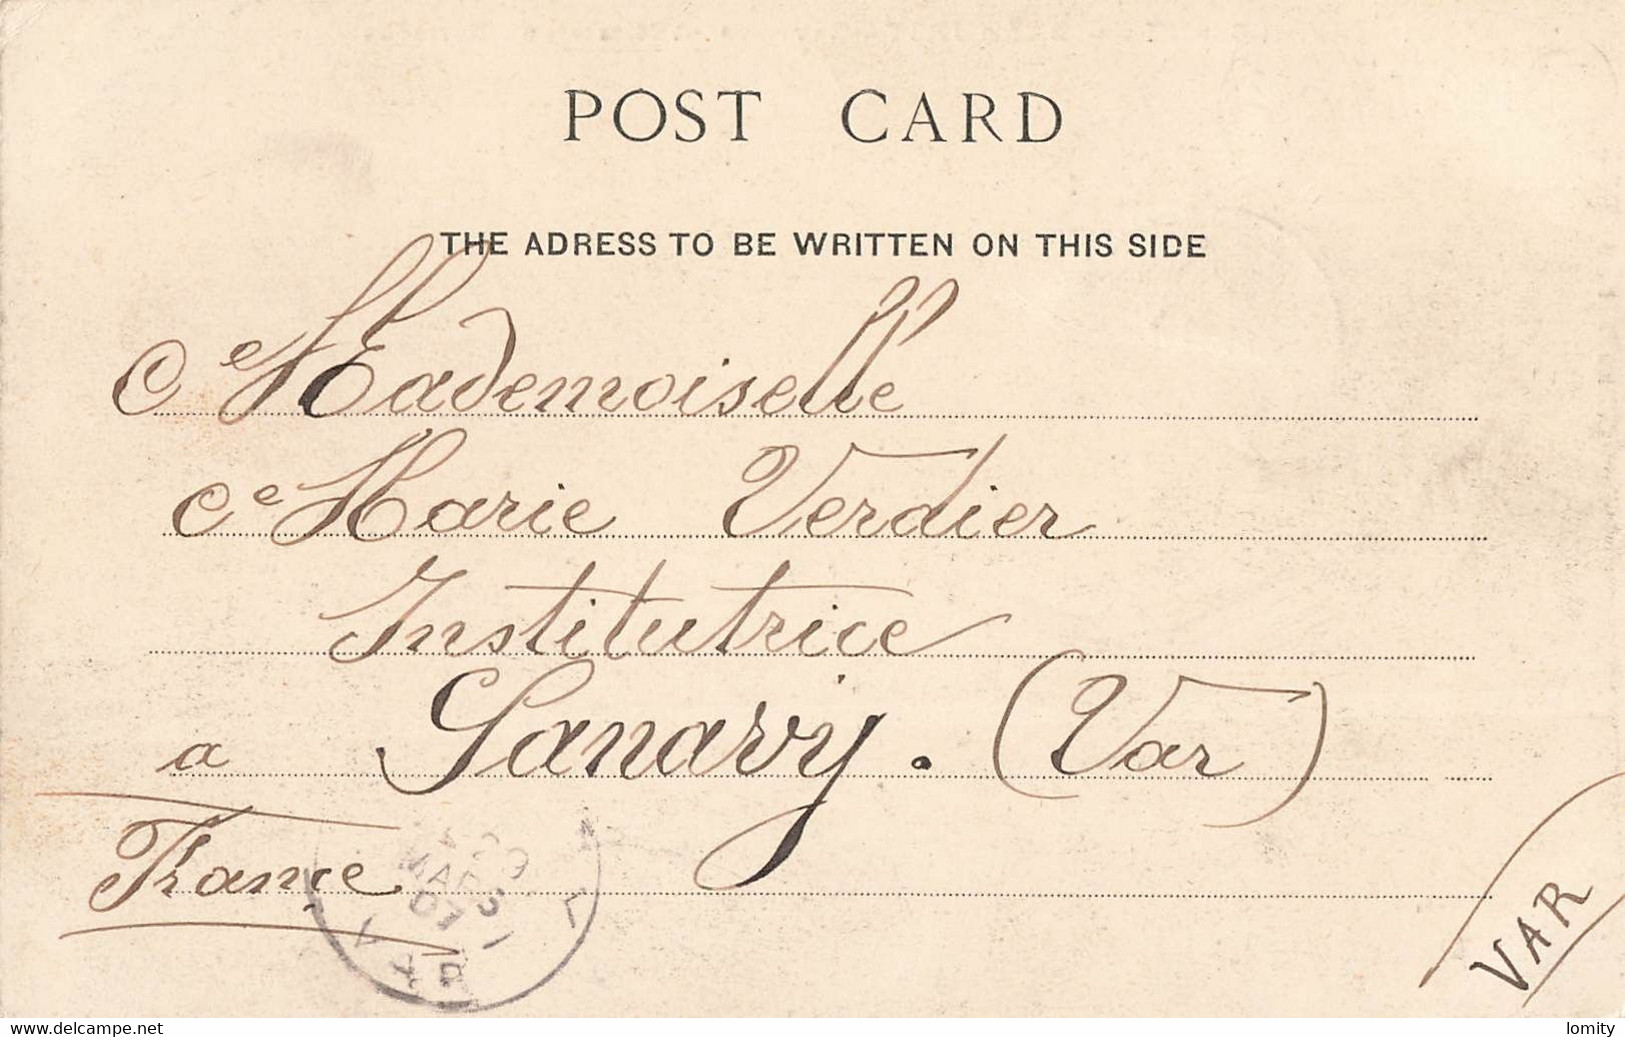 POST CARD
THE ADRESS TO BE WRITTEN ON THIS SIDE
Mademoiselle
Marie Verdier
Institutrice
a Sanary. (Var)
France
MARS
07
VAR
VAR
www.delcampe.net
lomity